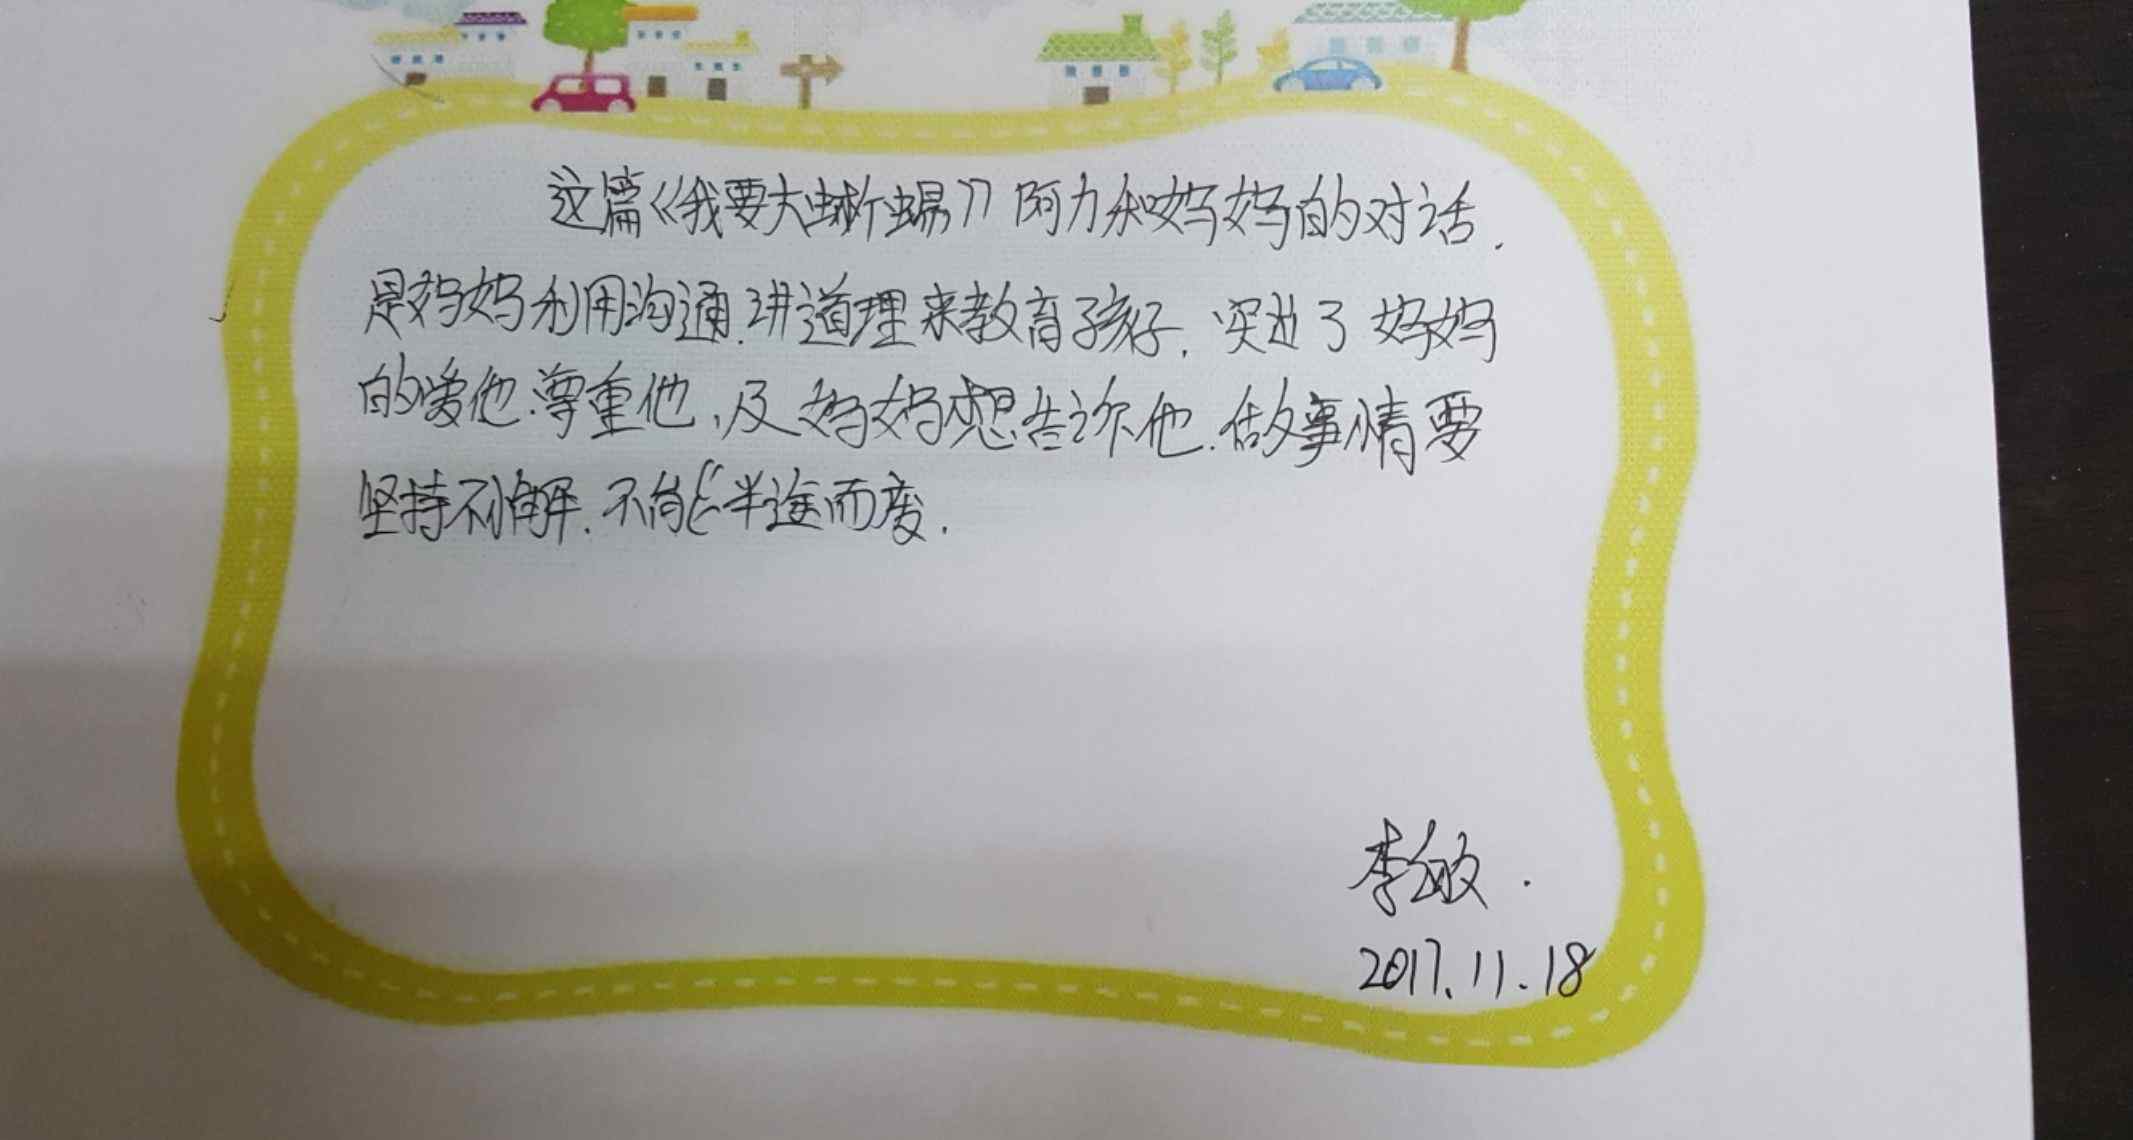 这篇《我要大蜥蜴》阿力和妈妈的对话.
是妈妈利用沟通.讲道理来教育孩子.突出了妈妈
的爱他.尊重他,及妈妈想告诉他.做事情要
坚持不懈.不能半途而废.
李敏.
2017.11.18